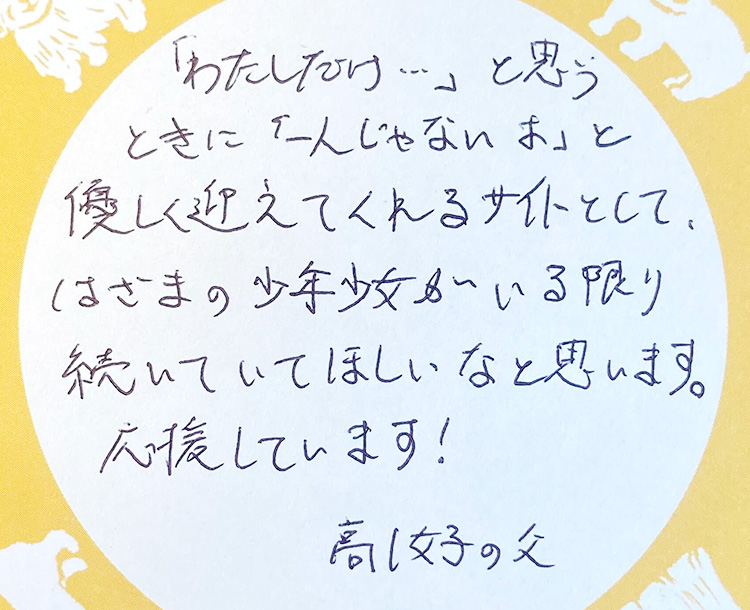 「わたしだけ…」と思う
ときに「一人じゃないよ」と
優しく迎えてくれるサイトとして、
はざまの少年少女がいる限り
続いていてほしいなと思います。
応援しています!
高1女子の父